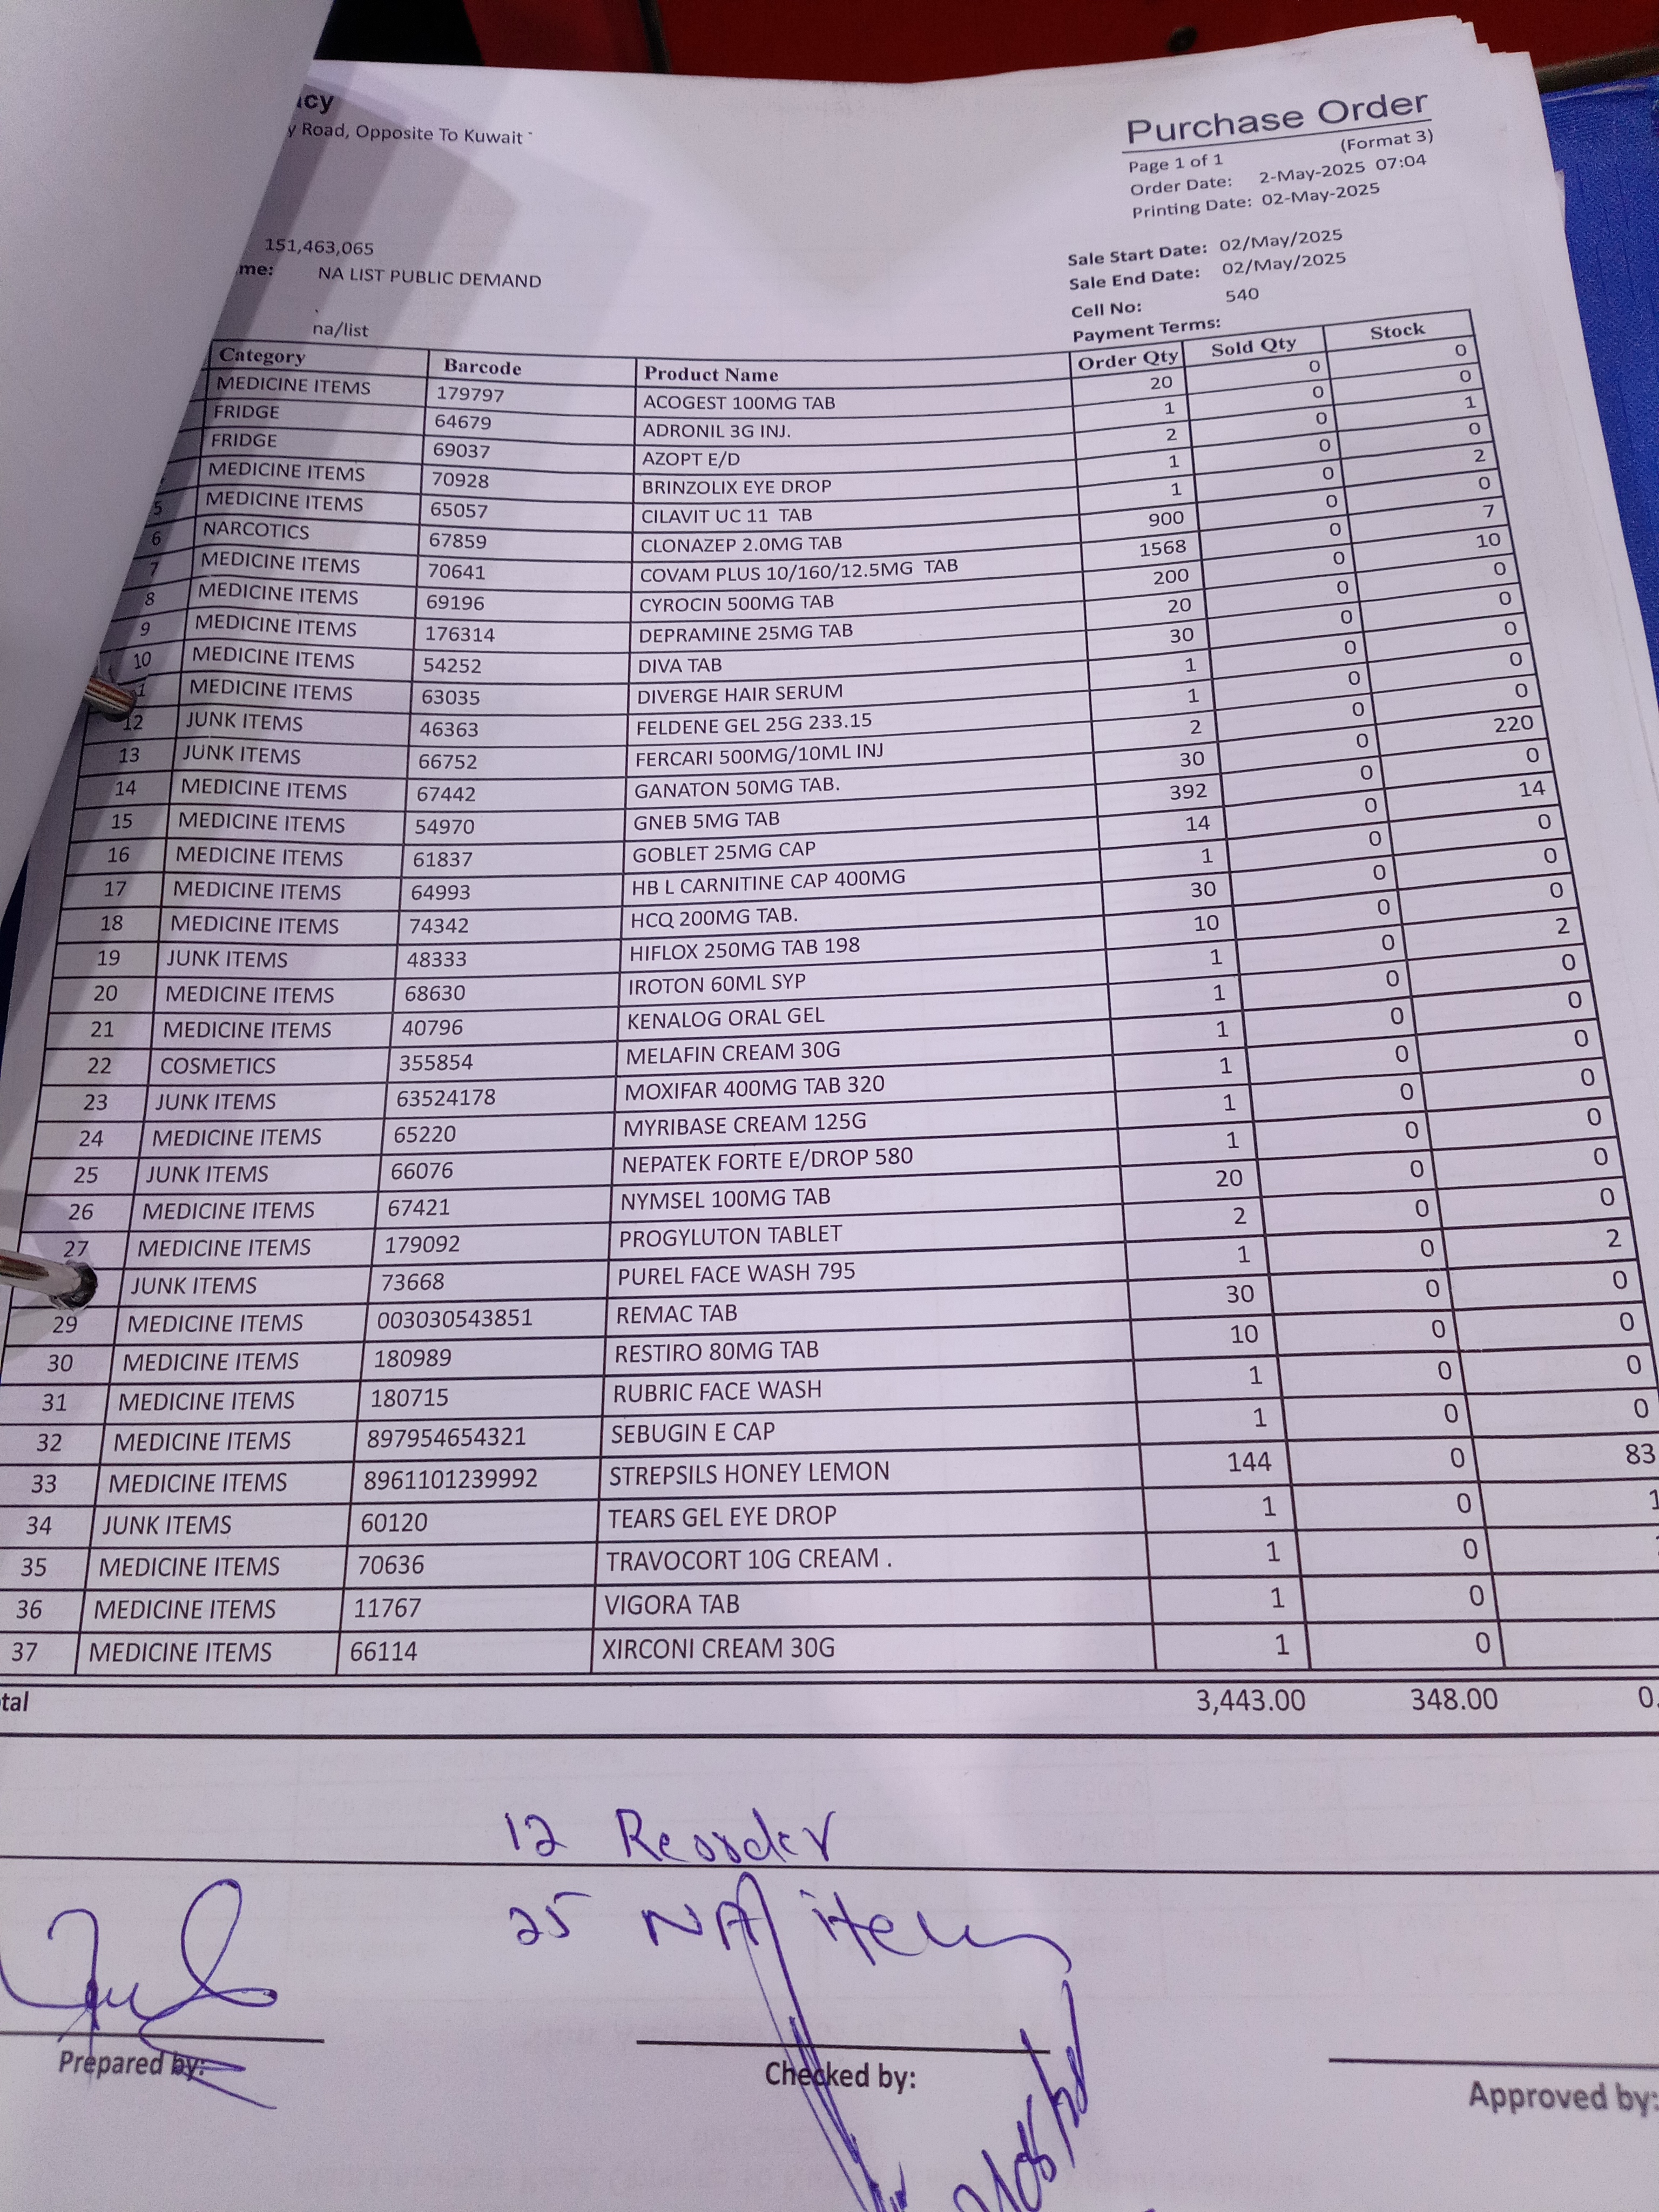 cy
y Road, Opposite To Kuwait `
Purchase Order
(Format 3)
Page 1 of 1
Order Date: 2-May-2025 07:04
Printing Date: 02-May-2025
151,463,065
me: NA LIST PUBLIC DEMAND
na/list
Sale Start Date: 02/May/2025
Sale End Date: 02/May/2025
Cell No: 540
Payment Terms:
Category Barcode Product Name Order Qty Sold Qty Stock
MEDICINE ITEMS 179797 ACOGEST 100MG TAB 20 0 0
FRIDGE 64679 ADRONIL 3G INJ. 1 0 0
FRIDGE 69037 AZOPT E/D 2 0 1
MEDICINE ITEMS 70928 BRINZOLIX EYE DROP 1 0 0
5 MEDICINE ITEMS 65057 CILAVIT UC 11 TAB 1 0 2
6 NARCOTICS 67859 CLONAZEP 2.0MG TAB 900 0 0
7 MEDICINE ITEMS 70641 COVAM PLUS 10/160/12.5MG TAB 1568 0 7
8 MEDICINE ITEMS 69196 CYROCIN 500MG TAB 200 0 10
9 MEDICINE ITEMS 176314 DEPRAMINE 25MG TAB 20 0 0
10 MEDICINE ITEMS 54252 DIVA TAB 30 0 0
1 MEDICINE ITEMS 63035 DIVERGE HAIR SERUM 1 0 0
12 JUNK ITEMS 46363 FELDENE GEL 25G 233.15 1 0 0
13 JUNK ITEMS 66752 FERCARI 500MG/10ML INJ 2 0 0
14 MEDICINE ITEMS 67442 GANATON 50MG TAB. 30 0 220
15 MEDICINE ITEMS 54970 GNEB 5MG TAB 392 0 0
16 MEDICINE ITEMS 61837 GOBLET 25MG CAP 14 0 14
17 MEDICINE ITEMS 64993 HB L CARNITINE CAP 400MG 1 0 0
18 MEDICINE ITEMS 74342 HCQ 200MG TAB. 30 0 0
19 JUNK ITEMS 48333 HIFLOX 250MG TAB 198 10 0 0
20 MEDICINE ITEMS 68630 IROTON 60ML SYP 1 0 2
21 MEDICINE ITEMS 40796 KENALOG ORAL GEL 1 0 0
22 COSMETICS 355854 MELAFIN CREAM 30G 1 0 0
23 JUNK ITEMS 63524178 MOXIFAR 400MG TAB 320 1 0 0
24 MEDICINE ITEMS 65220 MYRIBASE CREAM 125G 1 0 0
25 JUNK ITEMS 66076 NEPATEK FORTE E/DROP 580 1 0 0
26 MEDICINE ITEMS 67421 NYMSEL 100MG TAB 20 0 0
27 MEDICINE ITEMS 179092 PROGYLUTON TABLET 2 0 0
JUNK ITEMS 73668 PUREL FACE WASH 795 1 0 2
29 MEDICINE ITEMS 003030543851 REMAC TAB 30 0 0
30 MEDICINE ITEMS 180989 RESTIRO 80MG TAB 10 0 0
31 MEDICINE ITEMS 180715 RUBRIC FACE WASH 1 0 0
32 MEDICINE ITEMS 897954654321 SEBUGIN E CAP 1 0 0
33 MEDICINE ITEMS 8961101239992 STREPSILS HONEY LEMON 144 0 83
34 JUNK ITEMS 60120 TEARS GEL EYE DROP 1 0 1
35 MEDICINE ITEMS 70636 TRAVOCORT 10G CREAM . 1 0
36 MEDICINE ITEMS 11767 VIGORA TAB 1 0
37 MEDICINE ITEMS 66114 XIRCONI CREAM 30G 1 0
tal 3,443.00 348.00 0.
12 Reorder
25 NA items
Prepared by:
Checked by:
Approved by: